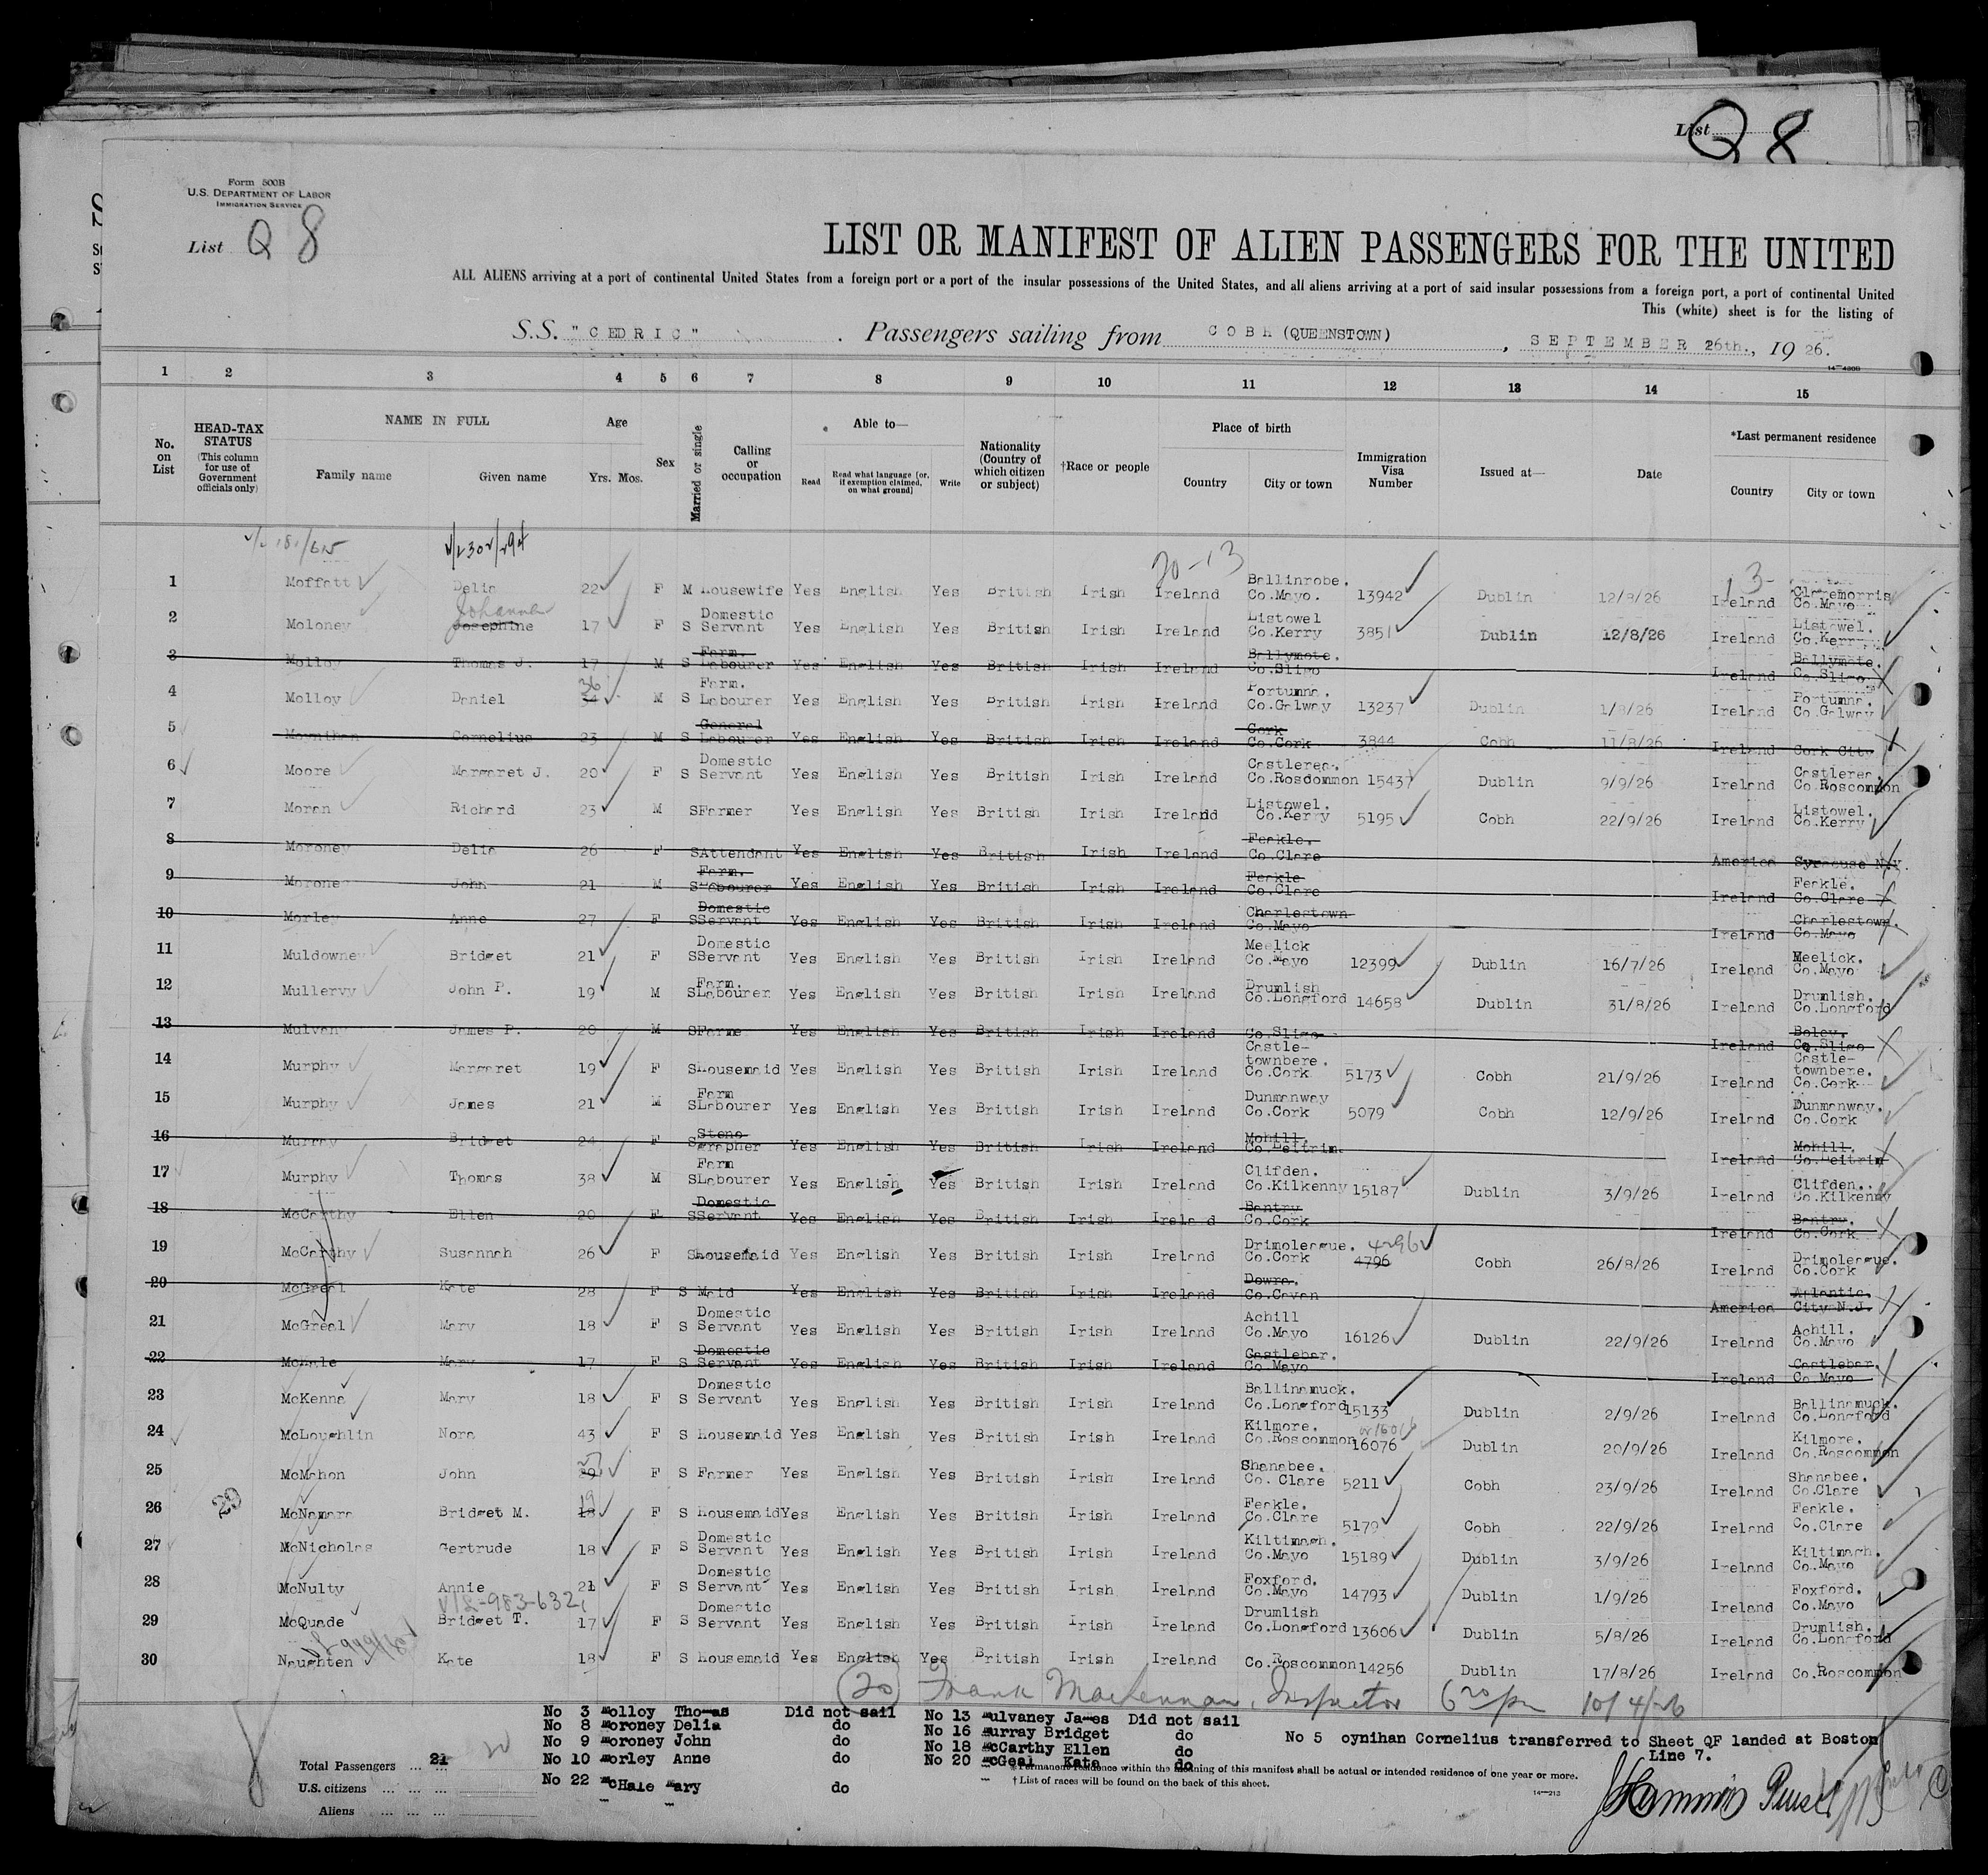 List Q 8
Form 500B
U.S. DEPARTMENT OF LABOR
IMMIGRATION SERVICE
List Q 8
LIST OR MANIFEST OF ALIEN PASSENGERS FOR THE UNITED
ALL ALIENS arriving at a port of continental United States from a foreign port or a port of the insular possessions of the United States, and all aliens arriving at a port of said insular possessions from a foreign port, a port of continental United
This (white) sheet is for the listing of
S.S. "CEDRIC" . Passengers sailing from COBH (QUEENSTOWN), SEPTEMBER 26th., 1926.
1 2 3 4 5 6 7 8 9 10 11 12 13 14 15
No. on List HEAD-TAX STATUS (This column for use of Government officials only) NAME IN FULL Family name Given name Age Yrs. Mos. Sex Married or single Calling or occupation Able to— Read Read what language [or, if exemption claimed, on what ground] Write Nationality (Country of which citizen or subject) †Race or people Place of birth Country City or town Immigration Visa Number Issued at— Date *Last permanent residence Country City or town
20-13 3-
1 Moffatt Delia 22 F M Housewife Yes English Yes British Irish Ireland Ballinrobe. Co.Mayo. 13942 Dublin 12/8/26 Ireland Claremorris Co.Mayo
2 Moloney Josephine Johanna 17 F S Domestic Servant Yes English Yes British Irish Ireland Listowel Co.Kerry 3851 Dublin 12/8/26 Ireland Listowel. Co.Kerry
3 Molloy Thomas J. 17 M S Farm. Labourer Yes English Yes British Irish Ireland Ballymote. Co.Sligo Ireland Ballymote. Co.Sligo
4 Molloy Daniel 36 M S Farm. Labourer Yes English Yes British Irish Ireland Portumna. Co.Galway 13237 Dublin 1/8/26 Ireland Portumna. Co.Galway
5 Moynihan Cornelius 23 M S General Labourer Yes English Yes British Irish Ireland Cork Co.Cork 3844 Cobh 11/8/26 Ireland Cork City
6 Moore Margaret J. 20 F S Domestic Servant Yes English Yes British Irish Ireland Castlerea. Co.Roscommon 15437 Dublin 9/9/26 Ireland Castlerea. Co.Roscommon
7 Moran Richard 23 M S Farmer Yes English Yes British Irish Ireland Listowel. Co.Kerry 5195 Cobh 22/9/26 Ireland Listowel. Co.Kerry
8 Moroney Delia 26 F S Attendant Yes English Yes British Irish Ireland Feakle. Co.Clare America Syracuse N.Y.
9 Moroney John 21 M S Farm. Labourer Yes English Yes British Irish Ireland Feakle Co.Clare Ireland Feakle. Co.Clare
10 Morley Anne 27 F S Domestic Servant Yes English Yes British Irish Ireland Charlestown Co.Mayo Ireland Charlestown. Co.Mayo
11 Muldowney Bridget 21 F S Domestic Servant Yes English Yes British Irish Ireland Meelick Co.Mayo 12399 Dublin 16/7/26 Ireland Meelick. Co.Mayo
12 Mullervy John P. 19 M S Farm. Labourer Yes English Yes British Irish Ireland Drumlish Co.Longford 14658 Dublin 31/8/26 Ireland Drumlish. Co.Longford
13 Mulvany James P. 20 M S Farme Yes English Yes British Irish Ireland Co.Sligo Ireland Boley. Co.Sligo
14 Murphy Margaret 19 F S Housemaid Yes English Yes British Irish Ireland Castle-townbere. Co.Cork 5173 Cobh 21/9/26 Ireland Castle-townbere. Co.Cork
15 Murphy James 21 M S Farm Labourer Yes English Yes British Irish Ireland Dunmanway Co.Cork 5079 Cobh 12/9/26 Ireland Dunmanway. Co.Cork
16 Murray Bridget 24 F S Steno grapher Yes English Yes British Irish Ireland Mohill. Co.Leitrim. Ireland Mohill. Co.Leitrim
17 Murphy Thomas 38 M S Farm Labourer Yes English Yes British Irish Ireland Clifden. Co.Kilkenny 15187 Dublin 3/9/26 Ireland Clifden. Co.Kilkenny
18 McCarthy Ellen 20 F S Domestic Servant Yes English Yes British Irish Ireland Bantry Co.Cork Ireland Bantry. Co.Cork
19 McCarthy Susannah 26 F S Housemaid Yes English Yes British Irish Ireland Drimoleague. Co.Cork 4796 4296 Cobh 26/8/26 Ireland Drimoleague. Co.Cork
20 McGreal Kate 28 F S Maid Yes English Yes British Irish Ireland Dowra. Co.Cavan America Atlantic. City N.J.
21 McGreal Mary 18 F S Domestic Servant Yes English Yes British Irish Ireland Achill Co.Mayo 16126 Dublin 22/9/26 Ireland Achill. Co.Mayo
22 McHale Mary 17 F S Domestic Servant Yes English Yes British Irish Ireland Castlebar. Co.Mayo Ireland Castlebar. Co.Mayo
23 McKenna Mary 18 F S Domestic Servant Yes English Yes British Irish Ireland Ballinamuck. Co.Longford 15133 Dublin 2/9/26 Ireland Ballinamuck. Co.Longford
24 McLoughlin Nora 43 F S Housemaid Yes English Yes British Irish Ireland Kilmore. Co.Roscommon 16076 Dublin 20/9/26 Ireland Kilmore. Co.Roscommon
25 McMahon John 29 F S Farmer Yes English Yes British Irish Ireland Shanabee. Co. Clare 5211 Cobh 23/9/26 Ireland Shanabee. Co.Clare
26 McNamara Bridget M. 18 19 F S Housemaid Yes English Yes British Irish Ireland Feakle. Co.Clare 5179 Cobh 22/9/26 Ireland Feakle. Co.Clare
27 McNicholas Gertrude 18 F S Domestic Servant Yes English Yes British Irish Ireland Kiltimagh. Co.Mayo 15189 Dublin 3/9/26 Ireland Kiltimagh. Co.Mayo
28 McNulty Annie 21 F S Domestic Servant Yes English Yes British Irish Ireland Foxford. Co.Mayo 14793 Dublin 1/9/26 Ireland Foxford. Co.Mayo
29 McQuade Bridget T. 17 F S Domestic Servant Yes English Yes British Irish Ireland Drumlish Co.Longford 13606 Dublin 5/8/26 Ireland Drumlish. Co.Longford
30 Naughten Kate 18 F S Housemaid Yes English Yes British Irish Ireland Co.Roscommon 14256 Dublin 17/8/26 Ireland Co.Roscommon
(20) Frank MacLennan, Inspector 6 20 pm 10/4/26
No 3 Molloy Thomas Did not sail
No 8 Moroney Delia do
No 9 Moroney John do
No 10 Morley Anne do
No 22 McHale Mary do
No 13 Mulvaney James Did not sail
No 16 Murray Bridget do
No 18 McCarthy Ellen do
No 20 McGeal Kate do
No 5 oynihan Cornelius transferred to Sheet QF landed at Boston
Line 7.
Total Passengers ... ... 21
U.S. citizens ... ... ...
Aliens ... ... ...
* Permanent residence within the meaning of this manifest shall be actual or intended residence of one year or more.
† List of races will be found on the back of this sheet.
14—213